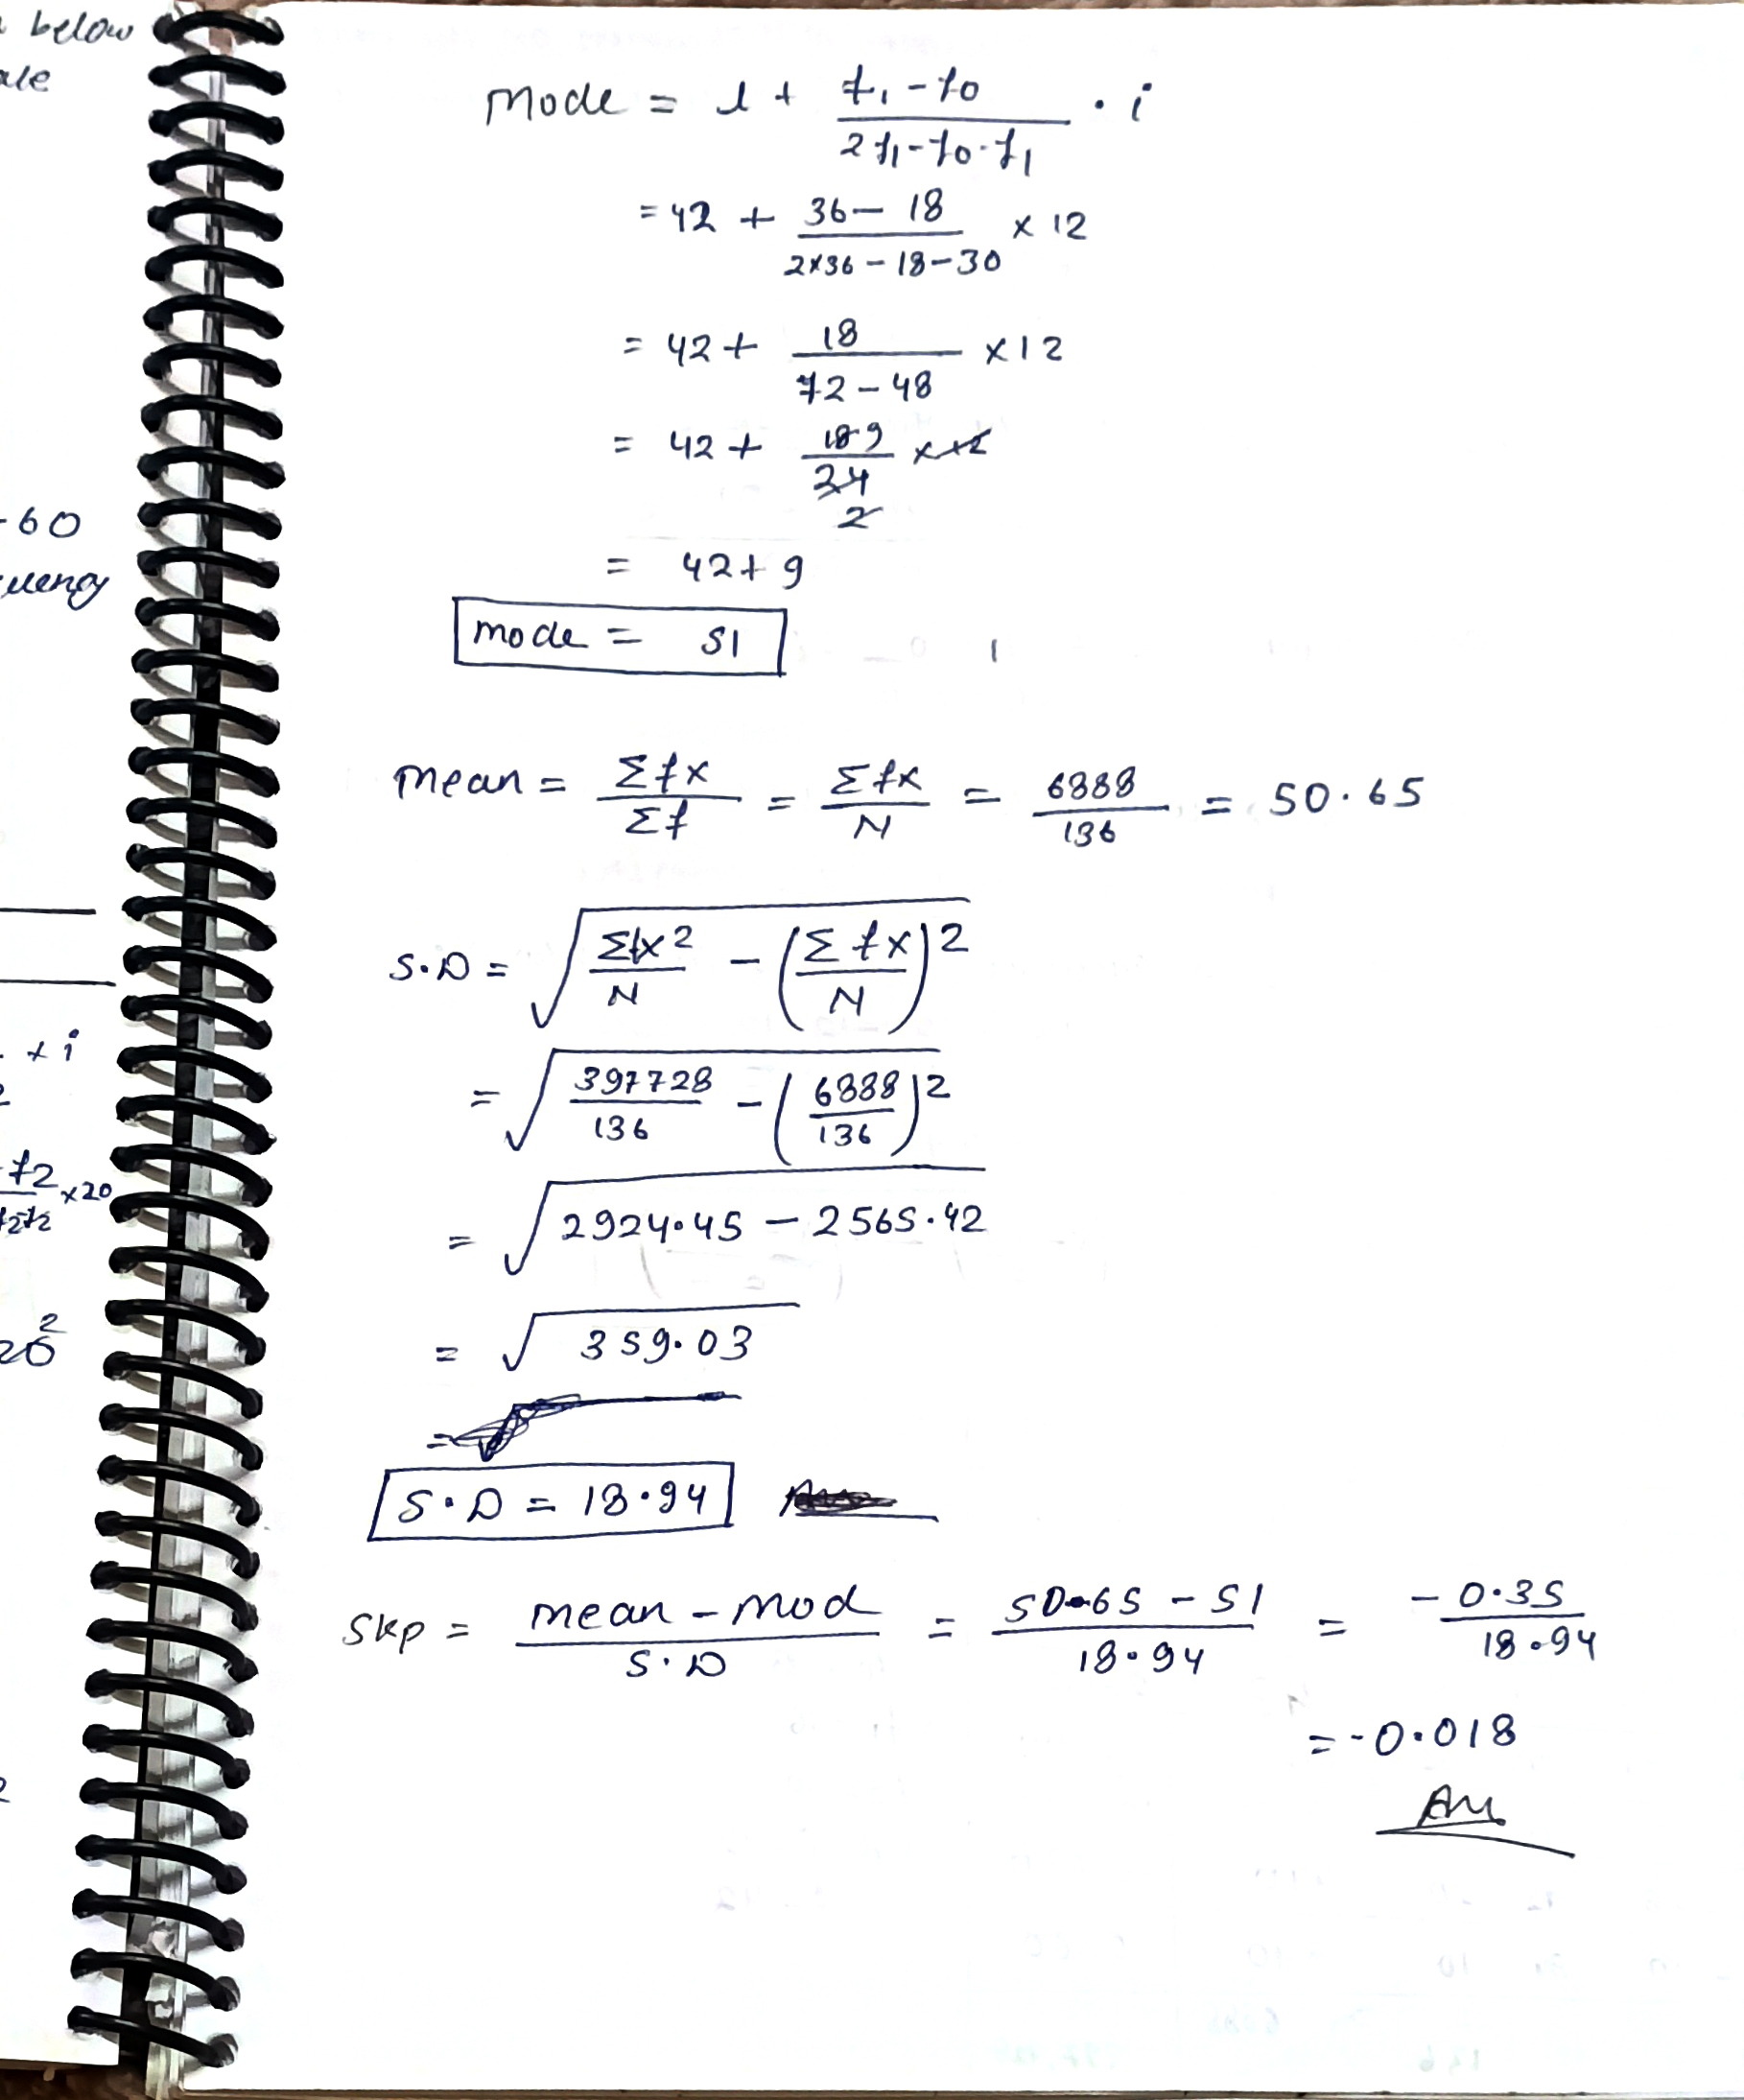 below
ale
-60
uency
+ i
72 ×20
2
20
Mode = l + f1 - f0 / 2f1 - f0 · f1 · i
= 42 + 36 - 18 / 2×36 - 18 - 30 × 12
= 42 + 18 / 72 - 48 × 12
= 42 + 18 9 / 24 2 × 12
= 42 + 9
mode = 51
mean = Σfx / Σf = Σfx / N = 6888 / 136 = 50.65
S.D = √ Σfx² / N - (Σfx / N)²
= √ 397728 / 136 - (6888 / 136)²
= √ 2924.45 - 2565.42
= √ 359.03
= √
S.D = 18.94
Skp = mean - mod / S.D = 50.65 - 51 / 18.94 = - 0.35 / 18.94
= -0.018
Ans